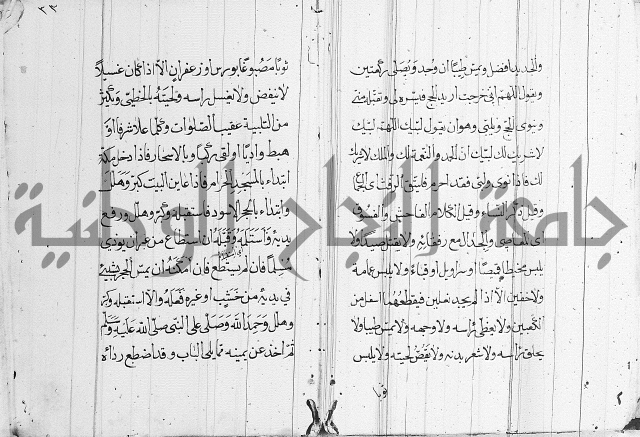 والجديد افضل ويمس طيبا ان وجد ويصلي ركعتين
ويقول اللهم اني اريد الحج فيسره لي وتقبله مني
وينوي الحج ويلبي وهو ان يقول لبيك اللهم لبيك
لا شريك لك لبيك ان الحمد والنعمة لك والملك لا شريك
لك فاذا نوى ولبى فقد احرم فليتق الرفث اي الجماع
وقيل ذكر النساء وقيل الكلام الفاحش والفسوق
اي المعاصي والجدال مع رفقائه ولا يقتل صيدا ولا
يلبس مخيطا قميصا او سراويل او قباء ولا يلبس عمامة
ولا خفين الا اذا لم يجد نعلين فيقطعهما اسفل من
الكعبين ولا يغطي راسه ولا وجهه ولا يمس طيبا ولا
يحلق راسه ولا شعر بدنه ولا يقص لحيته ولا يلبس
ثوبا
٢٣
ثوبا مصبوغا بورس او زعفران الا اذا كان غسيلا
لا ينفض ولا يغسل راسه ولحيته بالخطمي ويكثر
من التلبية عقيب الصلوات وكلما علا شرفا او
هبط واديا او لقي ركبا وبالاسحار فاذا دخل مكة
ابتداء بالمسجد الحرام فاذا عاين البيت كبر وهلل
وابتداء بالحجر الاسود فاستقبله وكبر وهلل ورفع
يديه واستلمه وقبله ان استطاع من غير ان يوذي
مسلما فان لم يستطع فان امكنه ان يمس الحجر بشيء
في يديه من خشب او غيره فعله والا استقبله وكبر
وهلل وحمد الله وصلى على النبي صلى الله عليه وسلم
ثم اخذ عن يمينه مما يلي الباب وقد اضطبع رداه
جامعة النجاح الوطنية